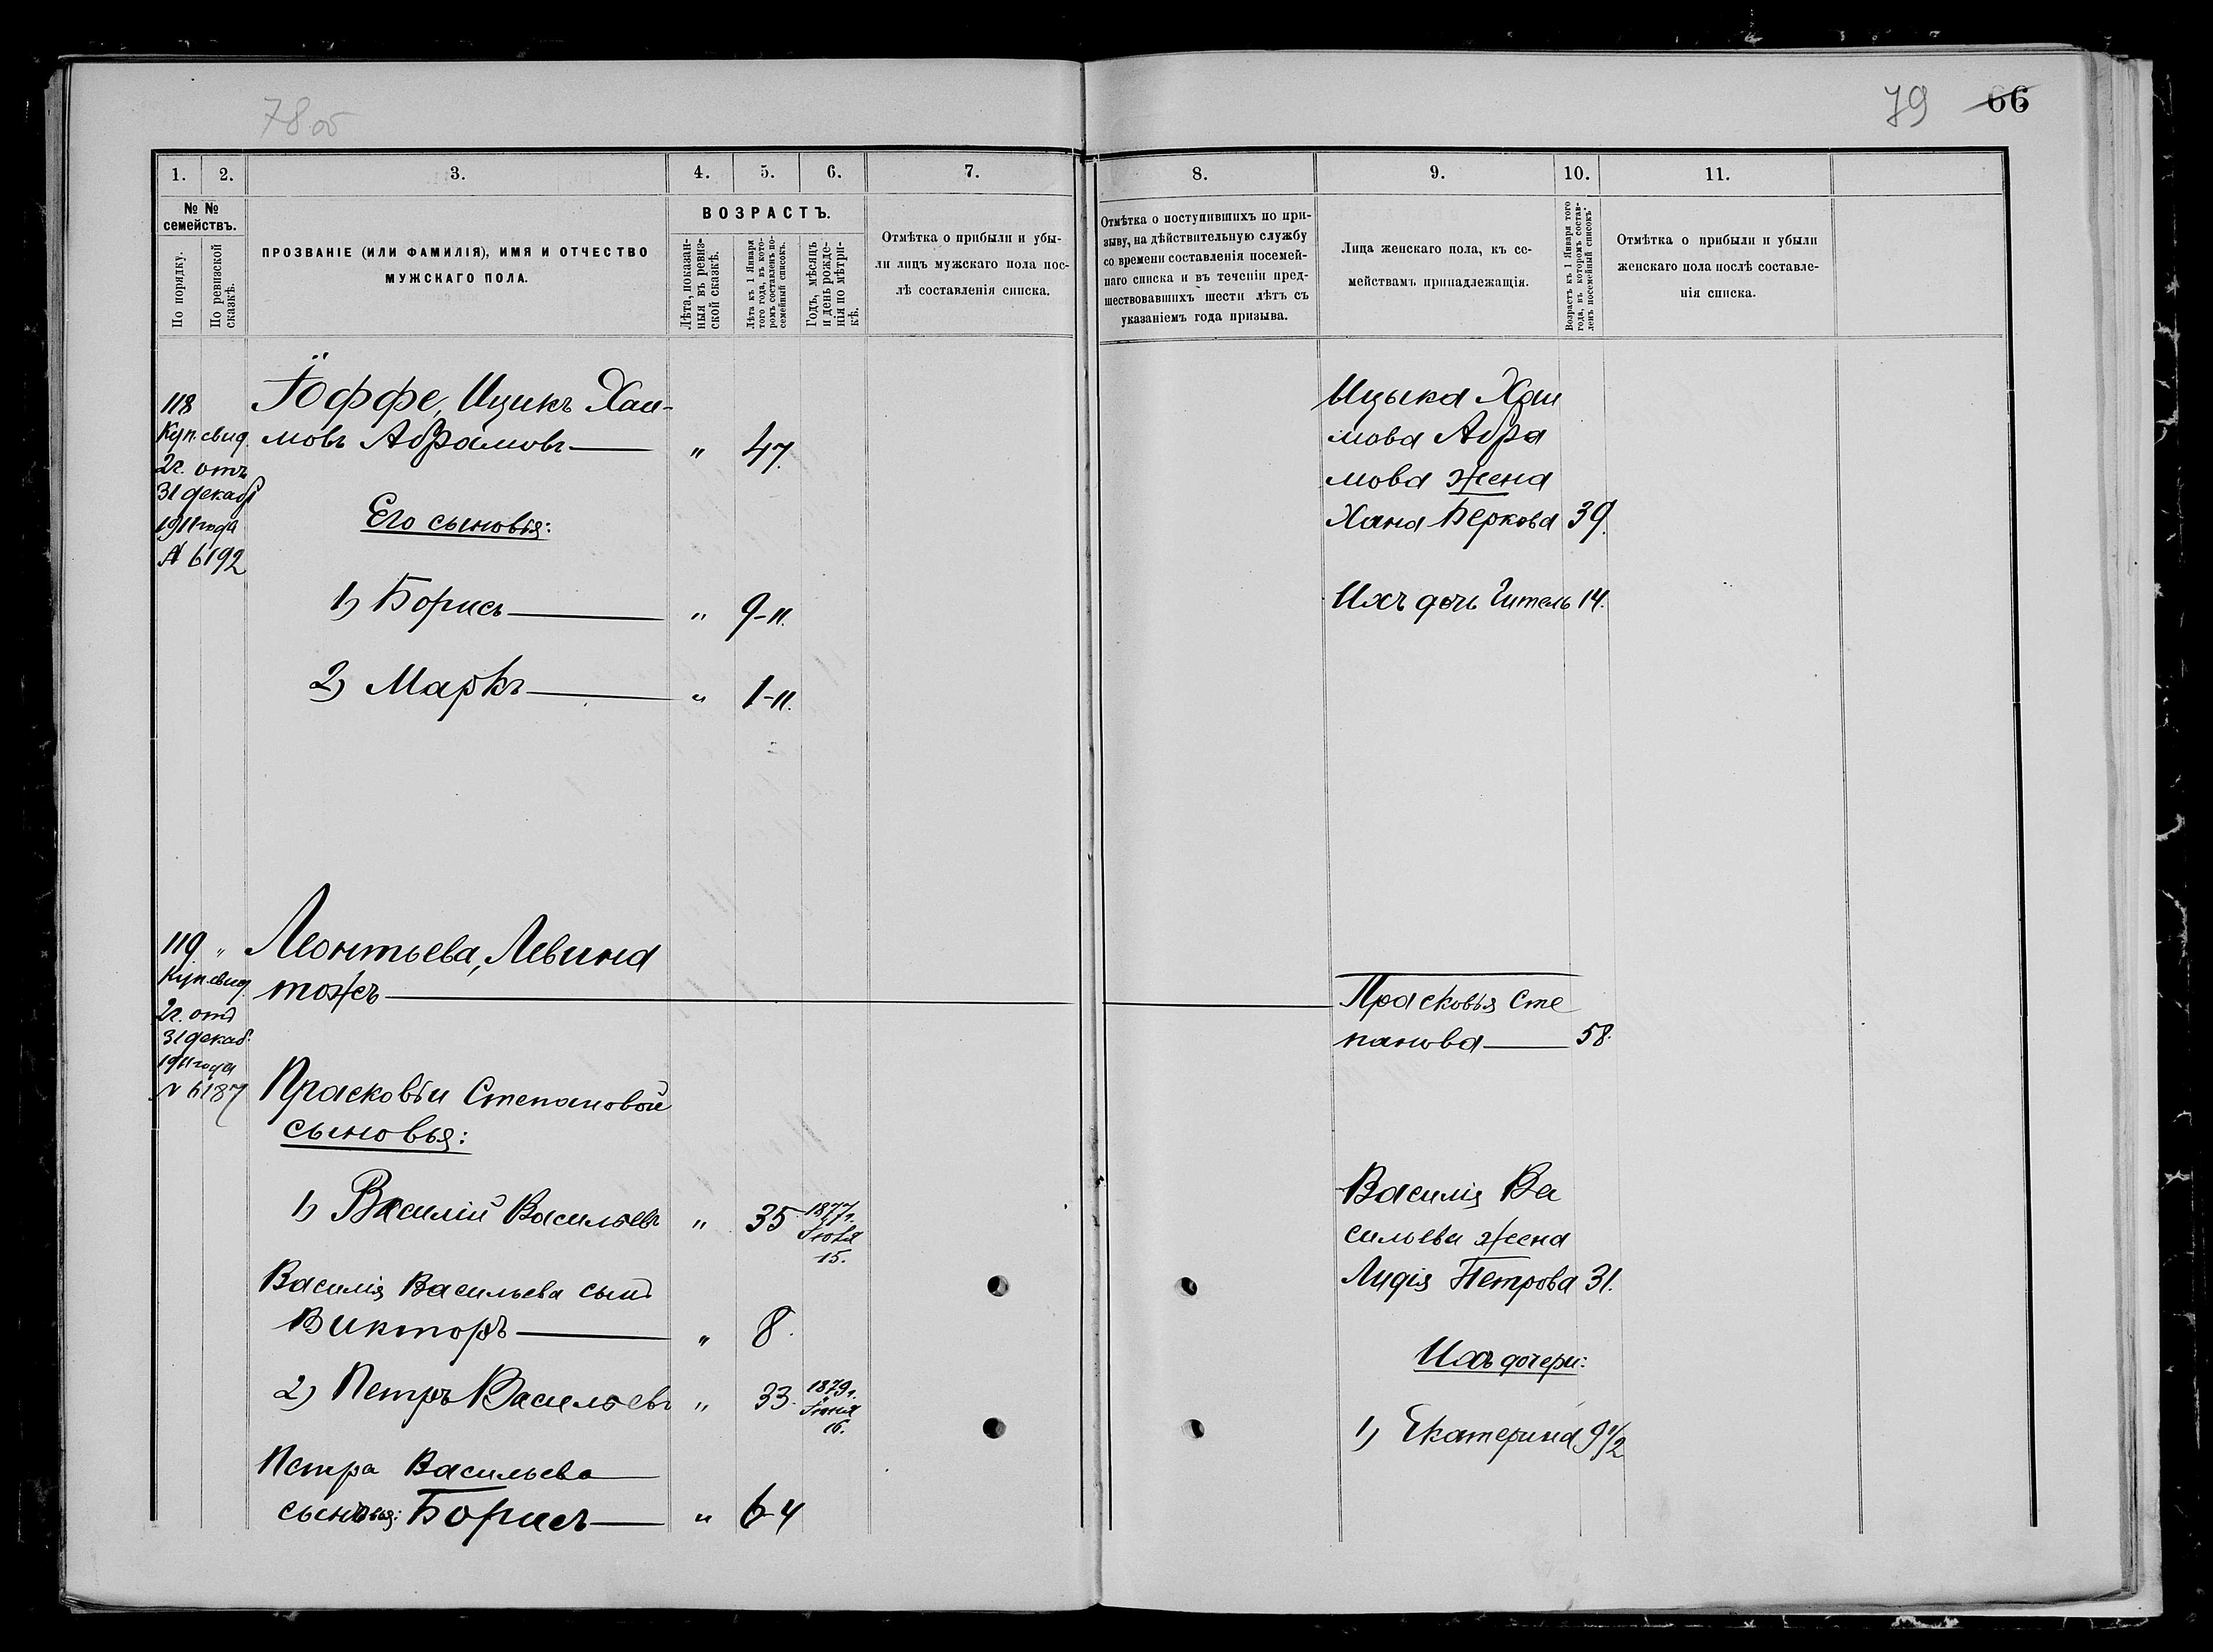 78 об
79 66
1. 2. 3. 4. 5. 6. 7.
№ № семействъ.
По порядку.
По ревизской сказкѣ.
ПРОЗВАНІЕ (ИЛИ ФАМИЛІЯ), ИМЯ И ОТЧЕСТВО
МУЖСКАГО ПОЛА.
ВОЗРАСТЪ.
Лѣта, показан-
ныя въ ревиз-
ской сказкѣ.
Лѣта къ 1 Января
того года, въ кото-
ромъ составленъ по-
семейный списокъ.
Годъ, мѣсяцъ
и день рожде-
нія по метри-
кѣ.
Отмѣтка о прибыли и убы-
ли лицъ мужскаго пола пос-
лѣ составленія списка.
118
Куп. свид.
2 г. отъ
31 декабр
1911 года
№ 6192
Іоффе, Ицикъ Хаи-
мовъ Абрамовъ " 47.
Его сыновья:
1) Борисъ " 9-11.
2) Маркъ " 1-11.
119. "
Куп. свид.
2 г. отъ
31 декаб.
1911 года
№ 6187
Леонтьева, Левина
тожъ
Прасковьи Степановой
сыновья:
1) Василій Васильевъ " 35 1877 г.
Іюля
15.
Василія Васильева сынъ
Викторъ " 8.
2) Петръ Васильевъ " 33. 1879 г.
Іюня
16.
Петра Васильева
сыновья: Борисъ " 6-4
8. 9. 10. 11.
Отмѣтка о поступившихъ по при-
зыву, на дѣйствительную службу
со времени составленія посемей-
наго списка и въ теченіи пред-
шествовавшихъ шести лѣтъ съ
указаніемъ года призыва.
Лица женскаго пола, къ се-
мействамъ принадлежащія.
Возрастъ къ 1 Января того
года, въ которомъ состав-
ленъ посемейный списокъ.
Отмѣтка о прибыли и убыли
женскаго пола послѣ составле-
нія списка.
Ицыка Хаи
мова Абра
мова жена
Хана Беркова 39.
Ихъ дочь Гитель 14.
Прасковья Сте
панова 58.
Василія Ва
сильева жена
Лидія Петрова 31.
Ихъ дочери:
1) Екатерина 9 1/2